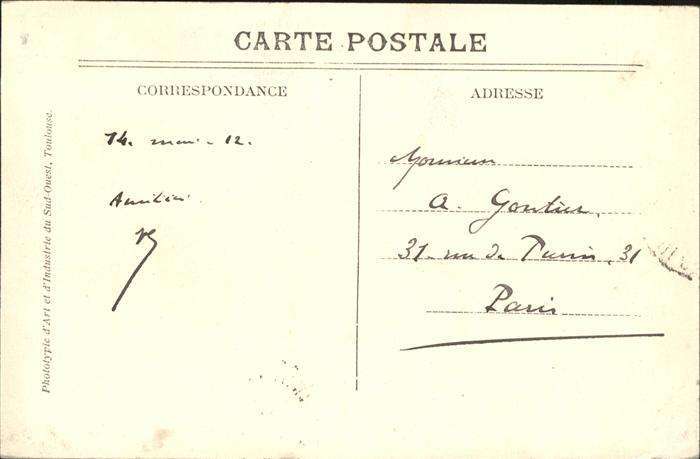 CARTE POSTALE
CORRESPONDANCE
ADRESSE
14. mai - 12.
Amitiés.
Monsieur
A. Gontier.
31. rue de Turin, 31
Paris
Phototypie d'Art et d'Industrie du Sud-Ouest, Toulouse.